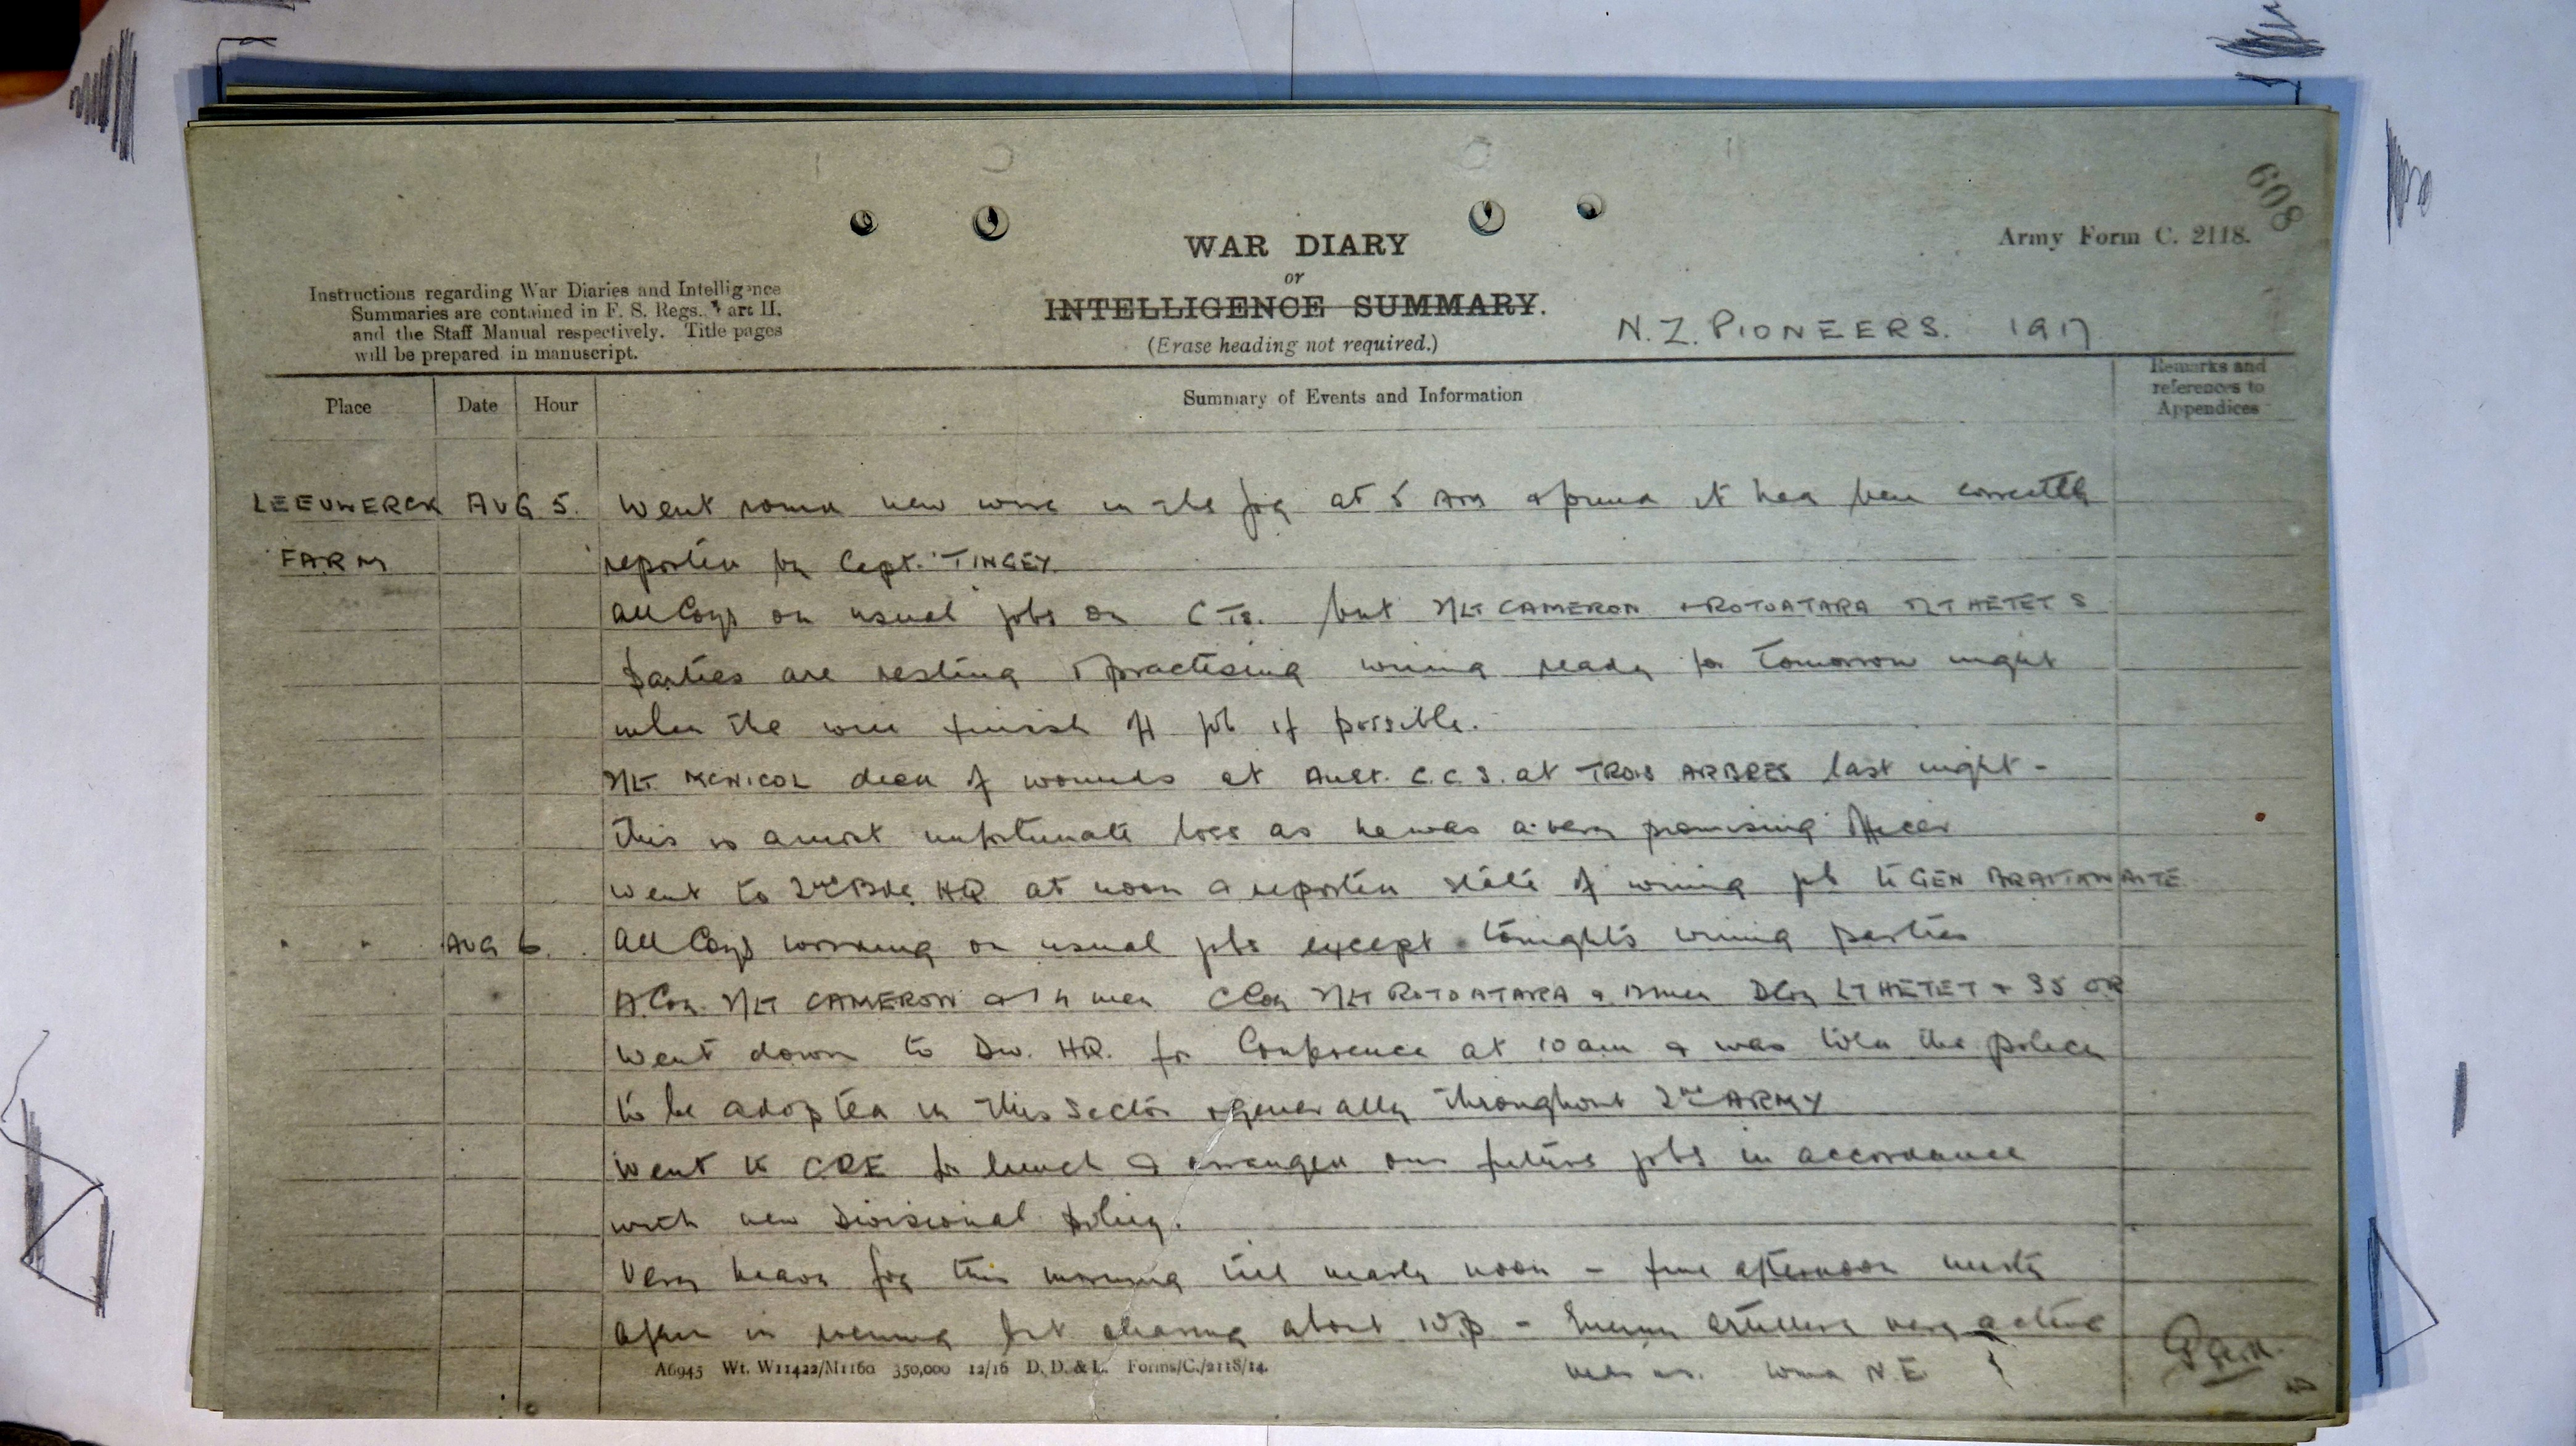 608
Army Form C. 2118.
WAR DIARY
or
INTELLIGENCE SUMMARY.
(Erase heading not required.)
Instructions regarding War Diaries and Intelligence
Summaries are contained in F. S. Regs., Part II.
and the Staff Manual respectively. Title pages
will be prepared in manuscript.
N. Z. PIONEERS. 1917
Place Date Hour Summary of Events and Information Remarks and
references to
Appendices
LEEUWERCK AUG 5. Went round new wire in the fog at 5 AM & found it had been correctly
FARM reported by Capt. TINGEY
All Coys on usual jobs on C Ts. but 2/LT CAMERON & ROTOATARA & LT HETET S
parties are resting & practising wiring ready for tomorrow night
when the will finish off job if possible.
2/LT. MCNICOL died of wounds at Aust. C.C.S. at TROIS ARBRES last night -
this is a most unfortunate loss as he was a very promising officer
went to 2nd Bde HQ at noon & reported state of wiring job to GEN BRAITHWAITE
" " AUG 6. All Coys working on usual jobs except tonights wiring parties
A Coy. 2/LT CAMERON & men C Coy 2/LT ROTOATARA & men D Coy LT HETET & 35 OR
Went down to Div. HQ. for Conference at 10 am & was told the policy
to be adopted in this Sector & generally throughout 2nd ARMY
Went to CRE for lunch & arranged our future jobs in accordance
with new Divisional policy.
Very heavy fog this morning till nearly noon - fine afternoon misty
again in evening but clearing about 10 p - Enemy artillery very active
wind N.E.
A6945 Wt. W11422/M1160 350,000 12/16 D. D. & L. Forms/C./2118/14.